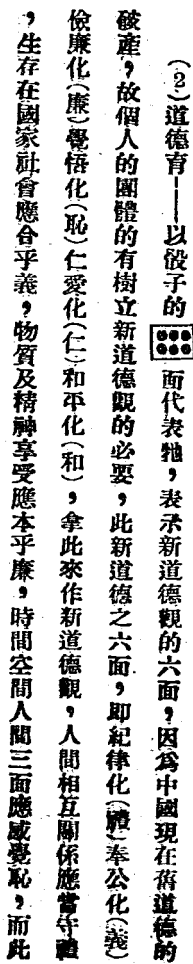 （2）道德育——以骰子的⚅面代表牠，表示新道德觀的六面，因爲中國現在舊道德的
破產，故個人的團體的有樹立新道德觀的必要，此新道德之六面，即紀律化（禮）奉公化（義）
儉廉化（廉）覺悟化（恥）仁愛化（仁）和平化（和），拿此來作新道德觀，人間相互關係應當守禮
，生存在國家社會應合乎義，物質及精神享受應本乎廉，時間空間人間三面應感覺恥，而此